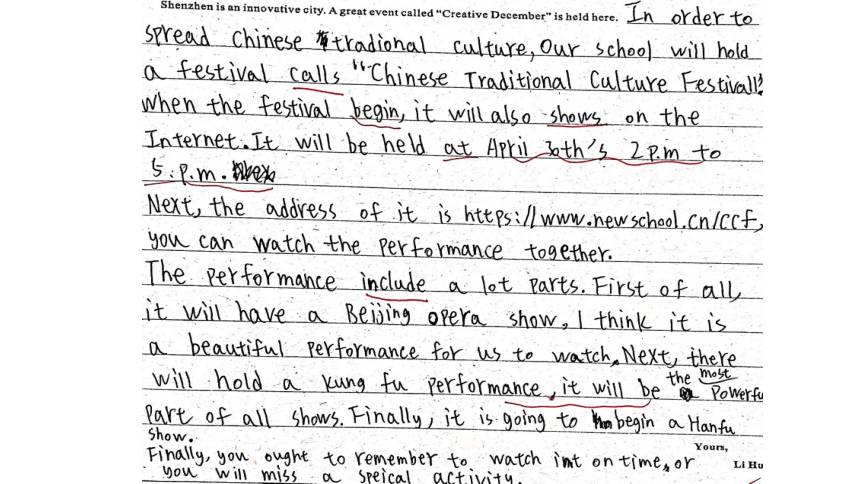 Shenzhen is an innovative city. A great event called "Creative December" is held here. In order to
spread Chinese tradional culture, Our school will hold
a festival calls "Chinese Traditional Culture Festival".
When the festival begin, it will also shows on the
Internet. It will be held at April 30th's 2 p.m to
5. p.m.
Next, the address of it is https://www.newschool.cn/ccf,
you can watch the performance together.
The performance include a lot parts. First of all,
it will have a Beijing opera show, I think it is
a beautiful performance for us to watch. Next, there
will hold a kung fu performance, it will be the most Powerfu
Part of all shows. Finally, it is going to begin a Hanfu
show.
Yours,
Finally, you ought to remember to watch it on time, or
Li Hu
you will miss a speical activity.